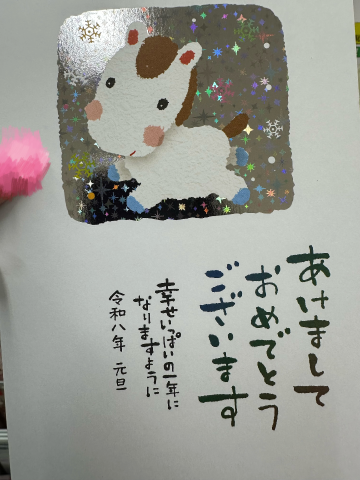 あけまして
おめでとう
ございます
幸せいっぱいの一年に
なりますように
令和八年 元旦